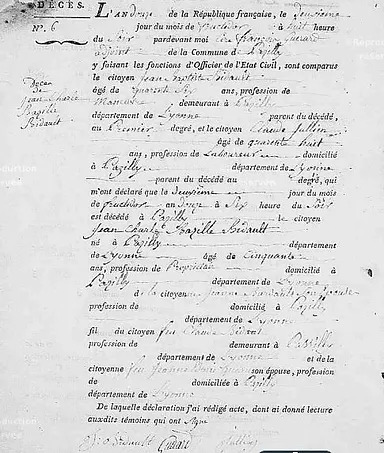 DÉCÈS.
N°. 6
L'AN douze de la République française, le deuxieme
jour du mois de fructidor à huit heure
du Soir pardevant moi
adjoint de la Commune de Pazilly
y faisant les fonctions d'Officier de l'Etat Civil, sont comparus
le citoyen Jean Baptiste Bidault
âgé de quarante Six ans, profession de
demeurant à Pazilly
département de Lyonne parent du décédé,
au Premier degré, et le citoyen Claude Jullien
âgé de quarante huit
ans, profession de Laboureur domicilié
à Pazilly département de Lyonne
parent du décédé au degré, qui
m'ont déclaré que le deuxieme jour du mois
de fructidor an douze à Six heure du Soir
est décédé à Pazilly le citoyen
Jean Charles Bazille Bidault
né à Pazilly département
de Lyonne âgé de Cinquante
ans, profession de Propriétaire domicilié à
Pazilly département de Lyonne
de la citoyenne Jeanne
profession de domicilié à Pazilly
département de Lyonne
fil du citoyen feu Claude Bidault
profession de demeurant à Pazilly
département de Lyonne et de la
citoyenne feu Jeanne son épouse, profession
de domiciliée à Pazilly
département de Lyonne
De laquelle déclaration j'ai rédigé acte, dont ai donné lecture
auxdits témoins qui ont Signé
Bidault Jullien
Déces
de
Jean Charle
Bazille
Bidault